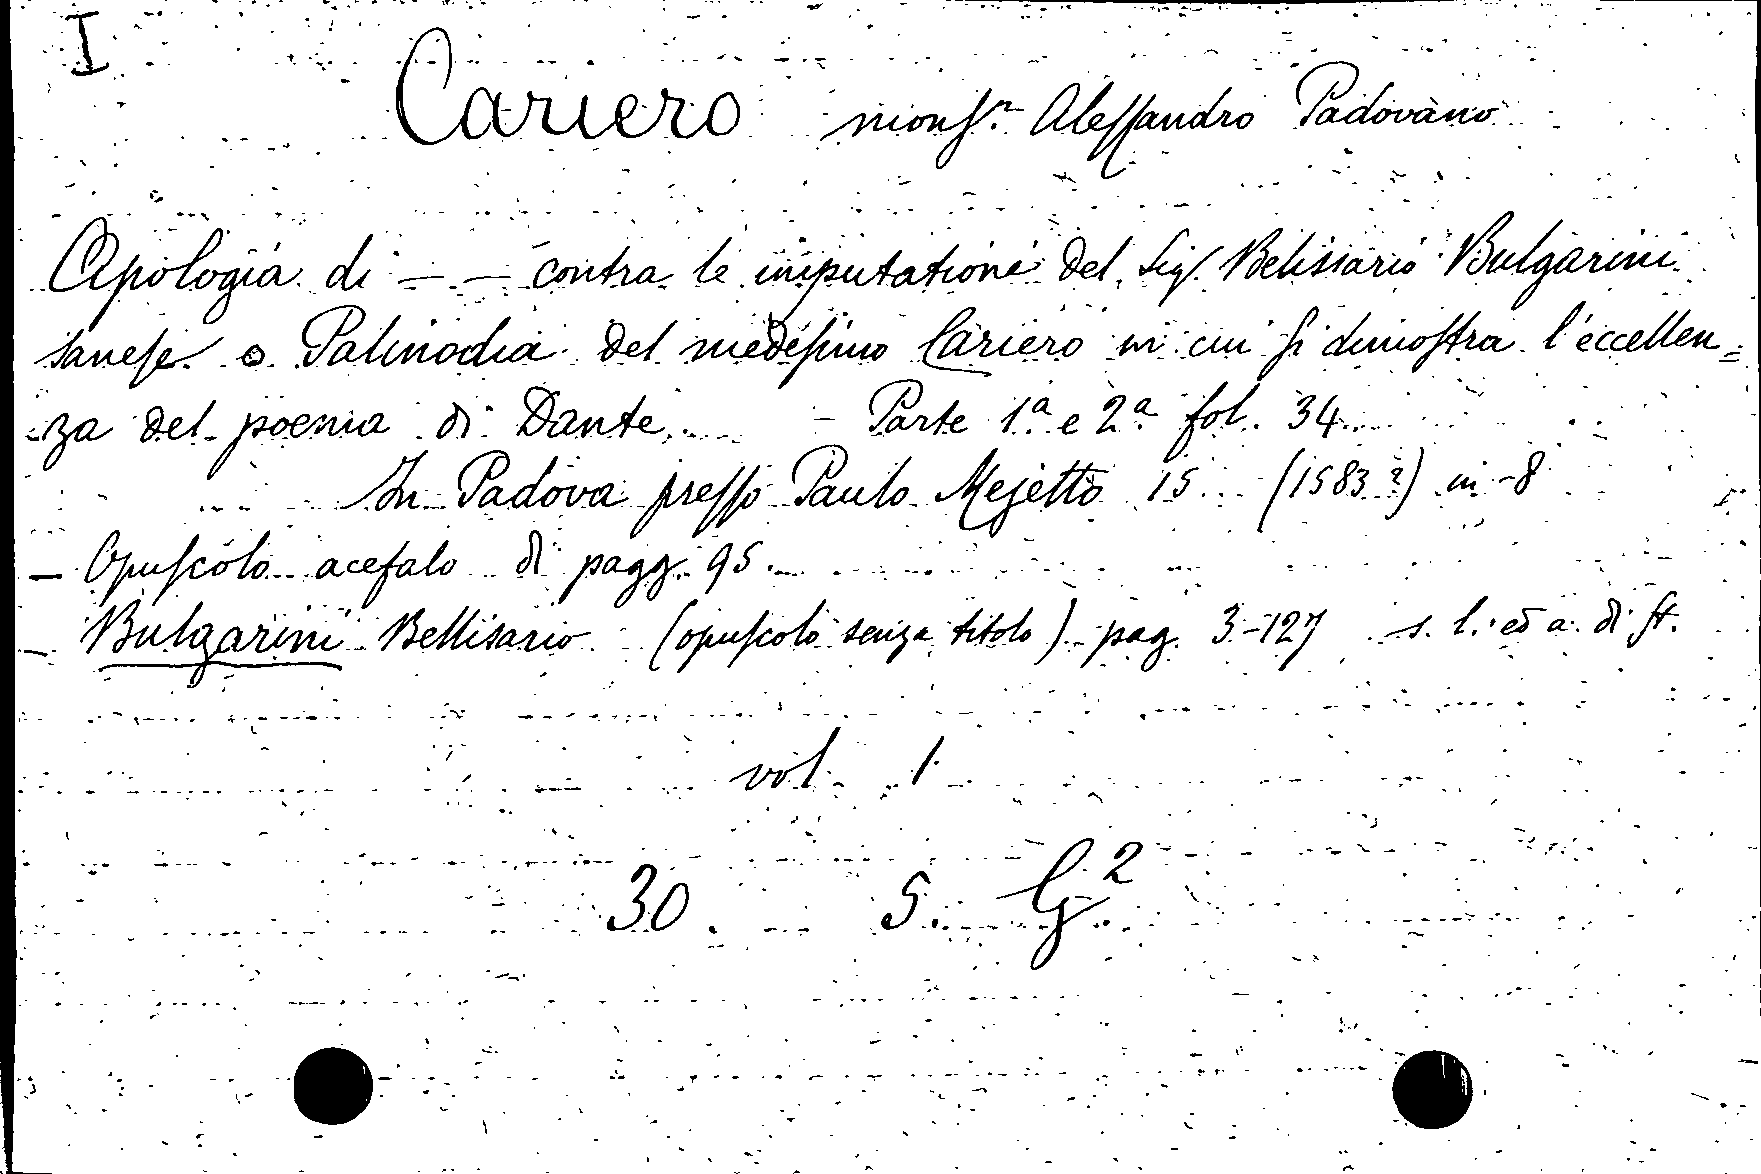 I
Cariero monsr. Alessandro Padovano
Apologia di — — contra le imputationi del Sig. Belisiario Bulgarini
sanese o Palinodia del medesimo Cariero in cui si dimostra l'eccellen=
za del poema di Dante. - Parte 1a. e 2a. fol. 34
In Padova presso Paulo Mejetto 15.. (1583?) in-8
— Opuscolo acefalo di pagg. 95.
— Bulgarini Bellisario (opuscolo senza titolo) pag. 3-127 s. l. ed a. di st.
vol. 1
30. 5. G.2